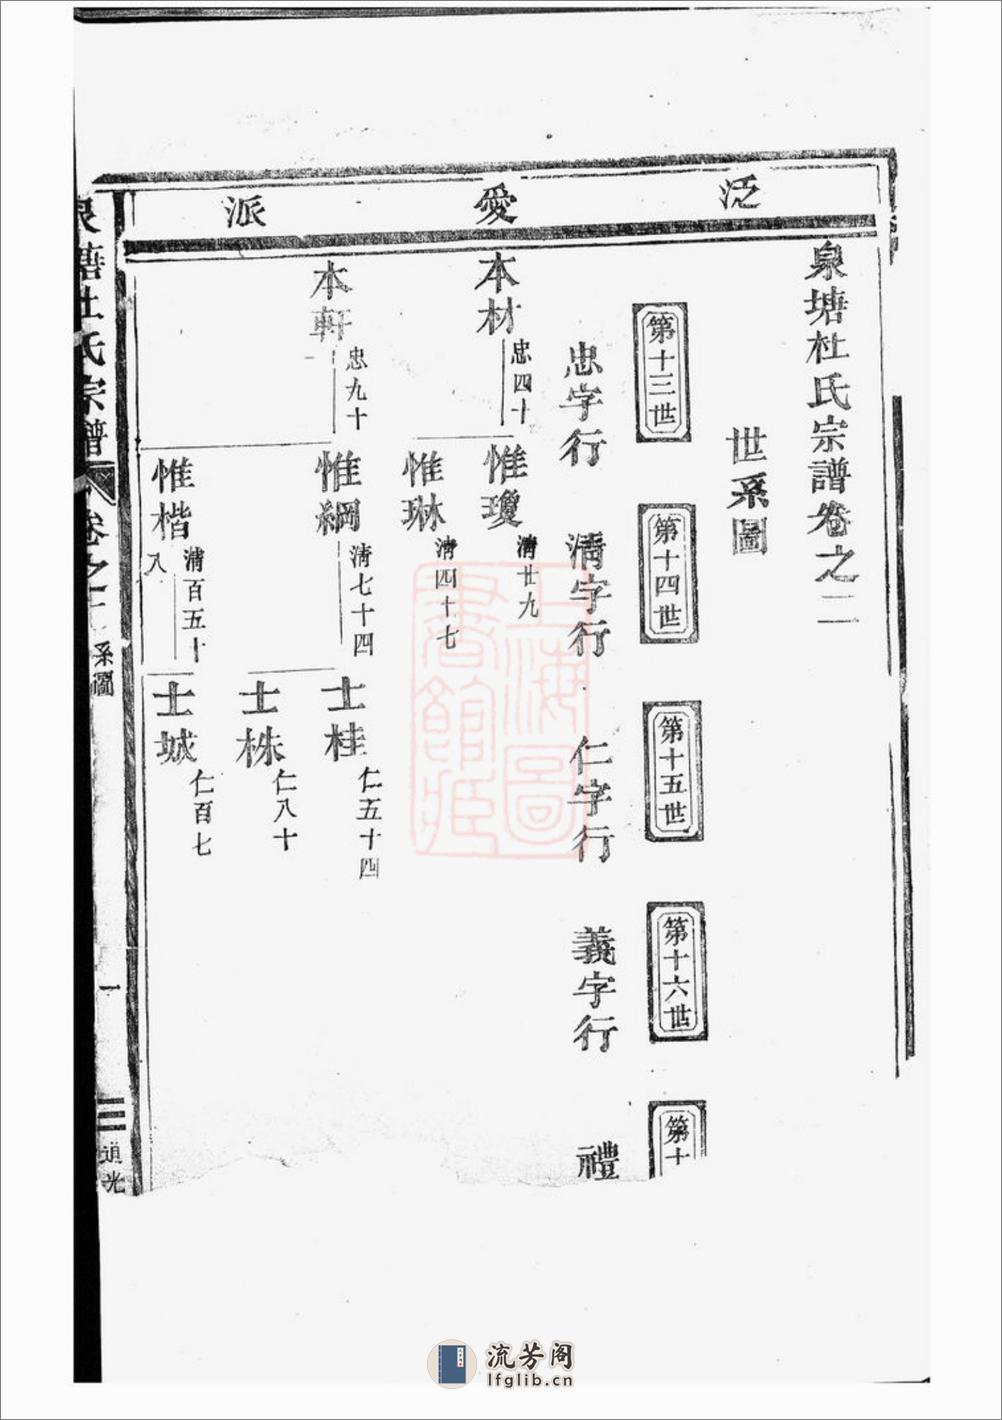 泛愛派
泉塘杜氏宗譜卷之二
世系圖
第十三世
第十四世
第十五世
第十六世
第十
忠字行
清字行
仁字行
義字行
禮
本材
忠四十
惟瓊
清廿九
惟琳
清四十七
本軒
忠九十
惟綱
清七十四
士桂
仁五十四
士株
仁八十
惟楷
清百五十
八
士城
仁百七
泉塘杜氏宗譜
卷之二
系圖
一
道光
上海圖
書館藏
流芳阁
lfglib.cn